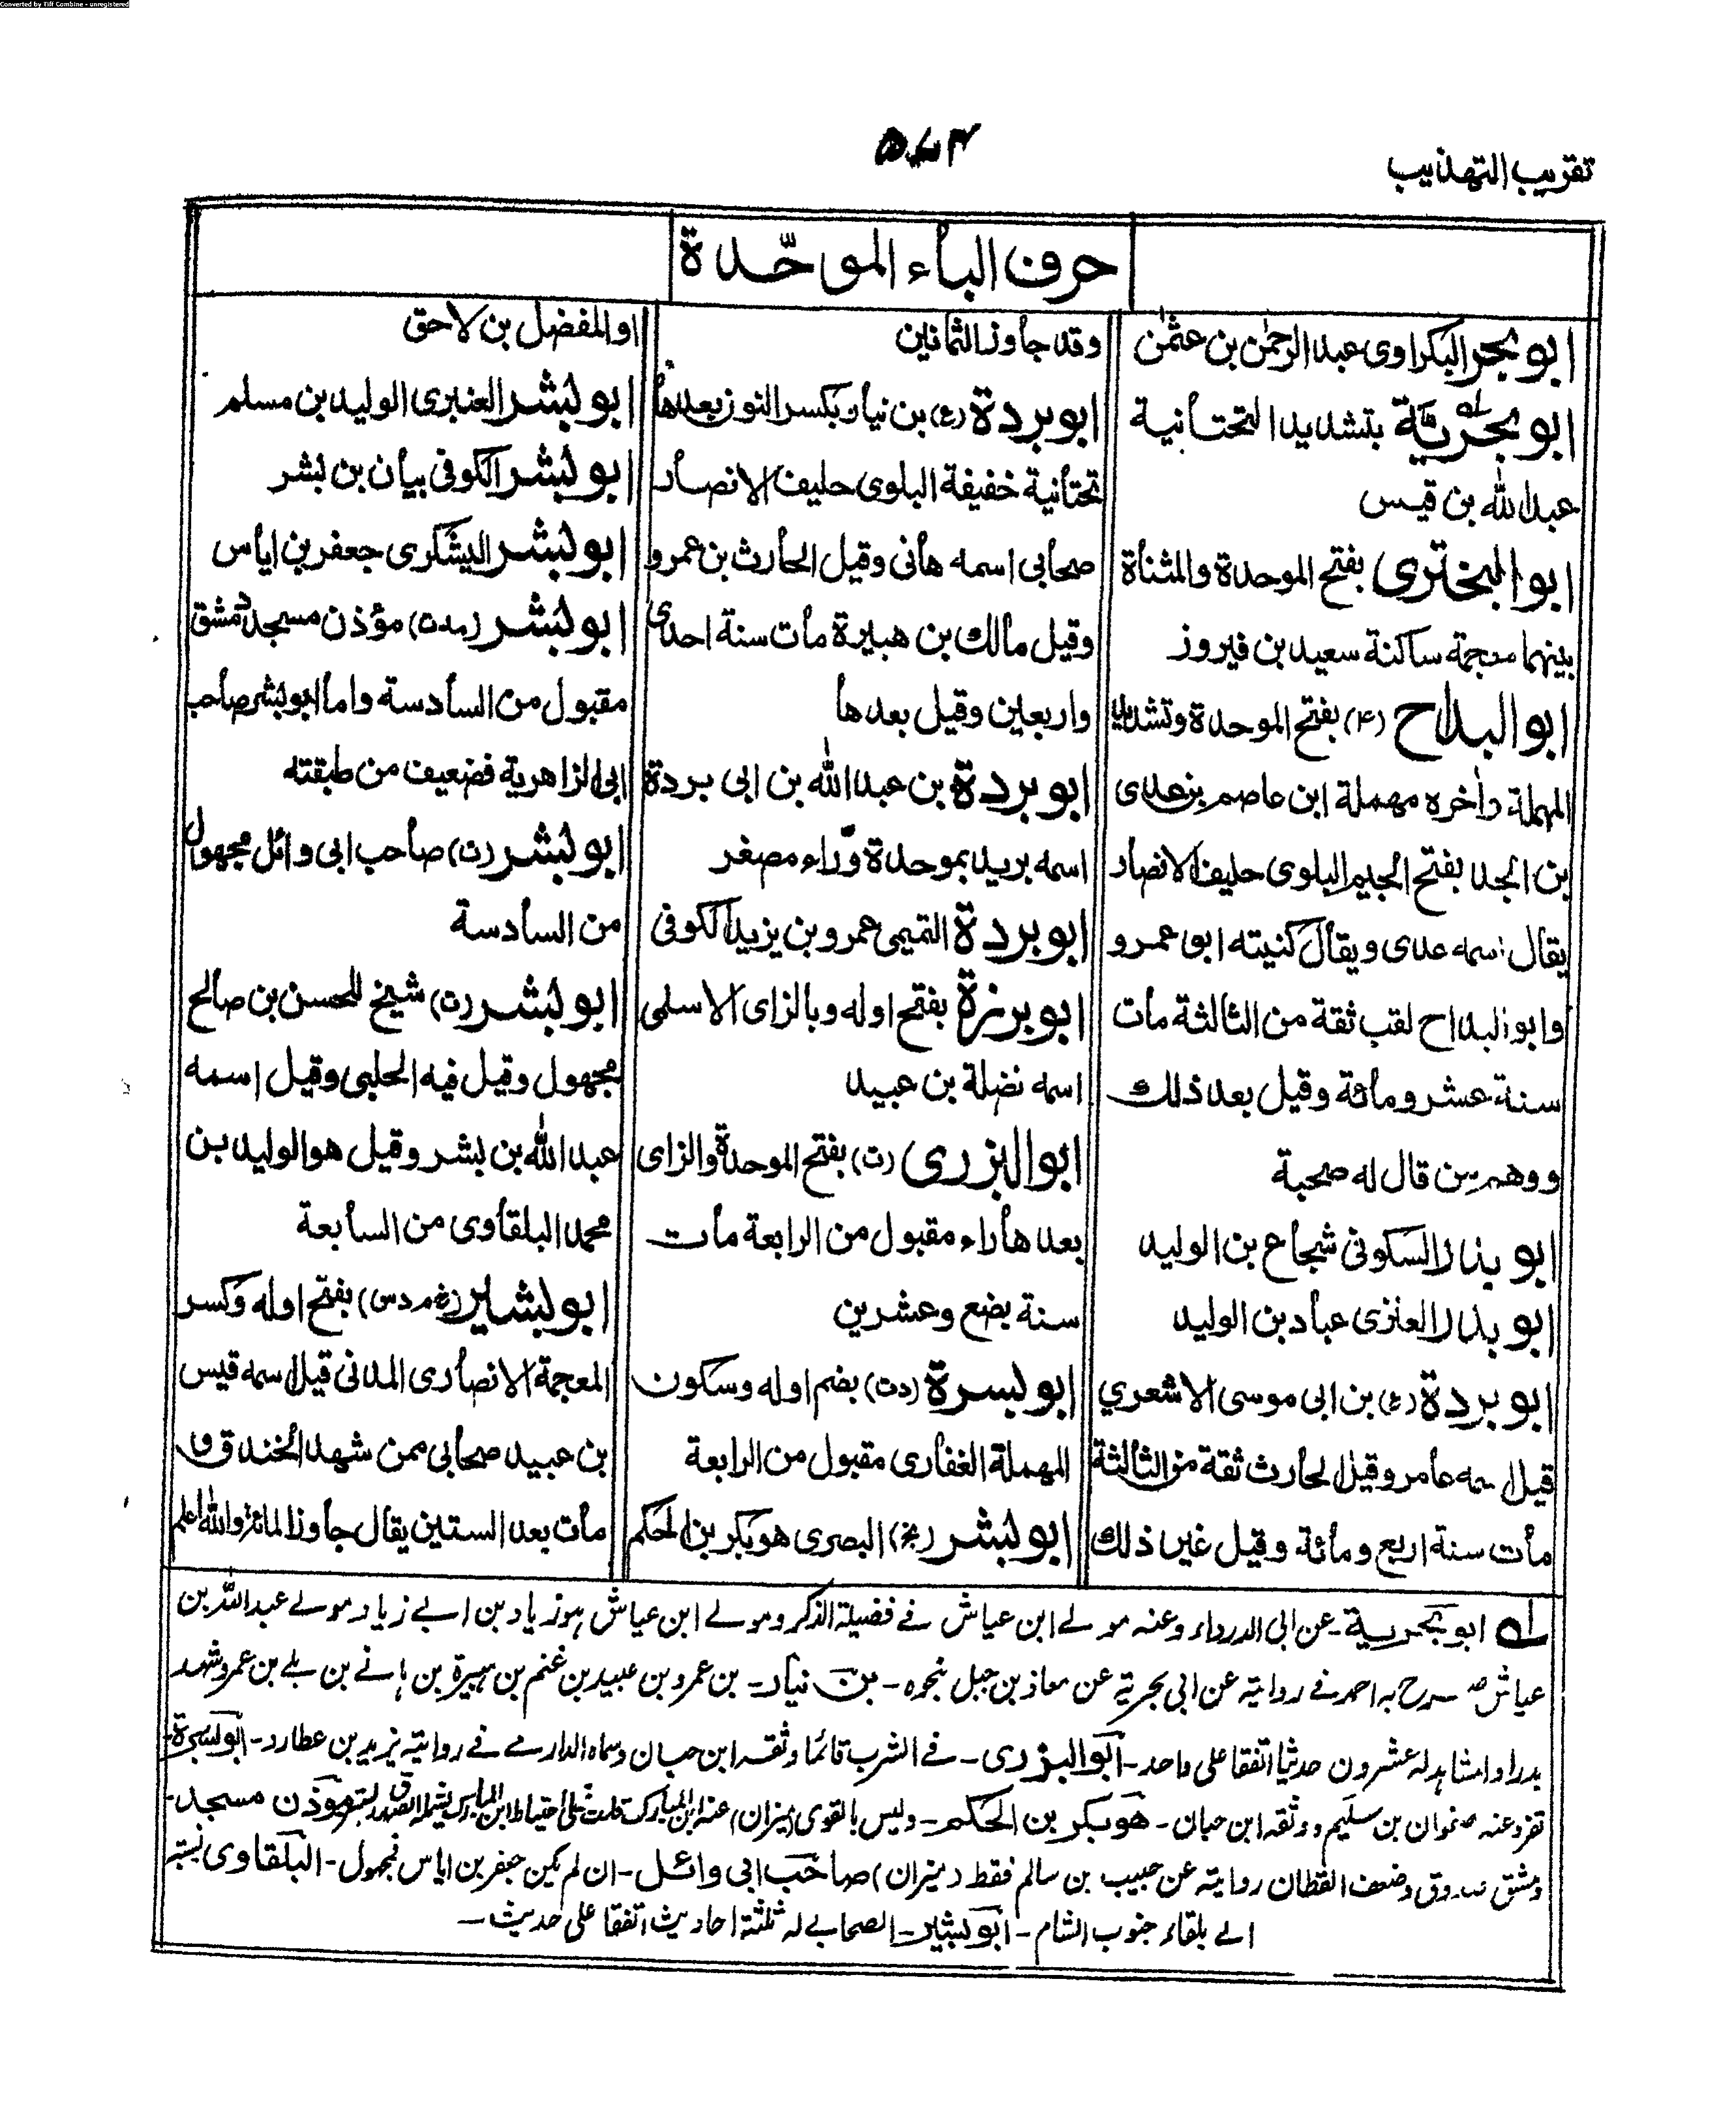 Converted by Tiff Combine - unregistered
تقريب التهذيب
۵۷۴
حرف الباء الموحّدة
ابو بحر البكراوى عبد الرحمٰن بن عثمٰن
ابو بحريّة بتشديد التحتانية
عبد الله بن قيس
ابو البخترى بفتح الموحدة والمثناة
بينهما معجمة ساكنة سعيد بن فيروز
ابو البداح (٤) بفتح الموحدة وتشديد
المهملة واٰخره مهملة ابن عاصم بن عدى
بن الجد بفتح الجيم البلوى حليف الانصار
يقال اسمه عدى ويقال كنيته ابو عمرو
وابو البداح لقب ثقة من الثالثة مات
سنة عشر ومائة وقيل بعد ذلك
ووهم من قال له صحبة
ابو بدر السكونى شجاع بن الوليد
ابو بدر العنزى عباد بن الوليد
ابو بردة (ع) بن ابى موسى الاشعري
قيل اسمه عامر وقيل الحارث ثقة من الثالثة
مات سنة اربع ومائة وقيل غير ذلك
وقد جاوز الثمانين
ابو بردة (ع) بن نيار بكسر النون بعدها
تحتانية خفيفة البلوى حليف الانصار
صحابى اسمه هانى وقيل الحارث بن عمرو
وقيل مالك بن هبيرة مات سنة احدى
واربعين وقيل بعدها
ابو بردة بن عبد الله بن ابى بردة
اسمه بريد بموحدة وراء مصغر
ابو بردة التميمى عمرو بن يزيد الكوفى
ابو برزة بفتح اوله وبالزاى الاسلمى
اسمه نضلة بن عبيد
ابو البزرى (ت) بفتح الموحدة والزاى
بعدها راء مقبول من الرابعة مات
سنة بضع وعشرين
ابو بسرة (دت) بضم اوله وسكون
المهملة الغفارى مقبول من الرابعة
ابو بشر (بخ) البصرى هو بكر بن الحكم
او المفضل بن لاحق
ابو بشر العنبرى الوليد بن مسلم
ابو بشر الكوفى بيان بن بشر
ابو بشر اليشكرى جعفر بن اياس
ابو بشر (مدت) مؤذن مسجد دمشق
مقبول من السادسة واما ابو بشر صاحب
ابى الزاهرية فضعيف من طبقته
ابو بشر (ت) صاحب ابى وائل مجهول
من السادسة
ابو بشر (ت) شيخ للحسن بن صالح
مجهول وقيل فيه الحلبى وقيل اسمه
عبد الله بن بشر وقيل هو الوليد بن
محمد البلقاوى من السابعة
ابو بشير (خ م د س) بفتح اوله وكسر
المعجمة الانصارى المدنى قيل اسمه قيس
بن عبيد صحابى ممن شهد الخندق و
مات بعد الستين يقال جاوز المائة والله اعلم
له ابو بحرية - عن ابى الدرداء وعنه مولے ابن عياش فے فضيلة الذكر ومولے ابن عياش ہو زياد بن ابے زياد مولے عبد الله بن
عياش صرح به احمد فے روايته عن ابى بحرية عن معاذ بن جبل نحوه - بن نيار - بن عمرو بن عبيد بن غنم بن ہبيرة بن ہانے بن بلے بن عمرو شهد
بدرا والمشاہد له عشرون حديثا اتفقا على واحد - ابو البزرى - فے الشرب قائما وثقه ابن حبان وسماه الدارمے فے روايته يزيد بن عطارد - ابو بسرة -
تفرد عنه صفوان بن سليم ووثقه ابن حبان - هو بكر بن الحكم - وليس بالقوى (ميزان) عنه ابن المبارك قلت مؤذن مسجد -
دمشق صدوق وضعف القطان روايته عن حبيب بن سالم فقط (ميزان) صاحب ابى وائل - ان لم يكن جعفر بن اياس فمجهول - البلقاوى نسبته
الے بلقاء جنوب الشام - ابو بشير - الصحابے له ثلثة احاديث اتفقا على حديث -